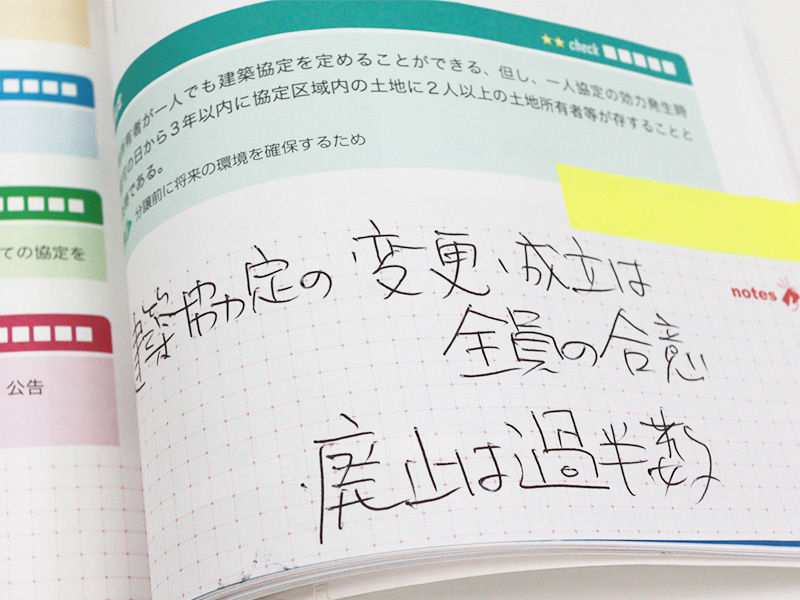 check
有者が一人でも建築協定を定めることができる、但し、一人協定の効力発生時
の日から３年以内に協定区域内の土地に２人以上の土地所有者等が存することと
である。
分譲前に将来の環境を確保するため
ての協定を
公告
notes
建築協定の変更、成立は
全員の合意
廃止は過半数